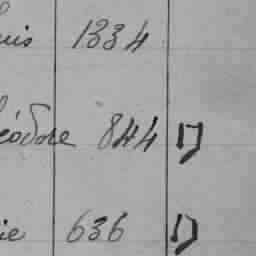 uis 1334
éodore 844 D
ie 636 D